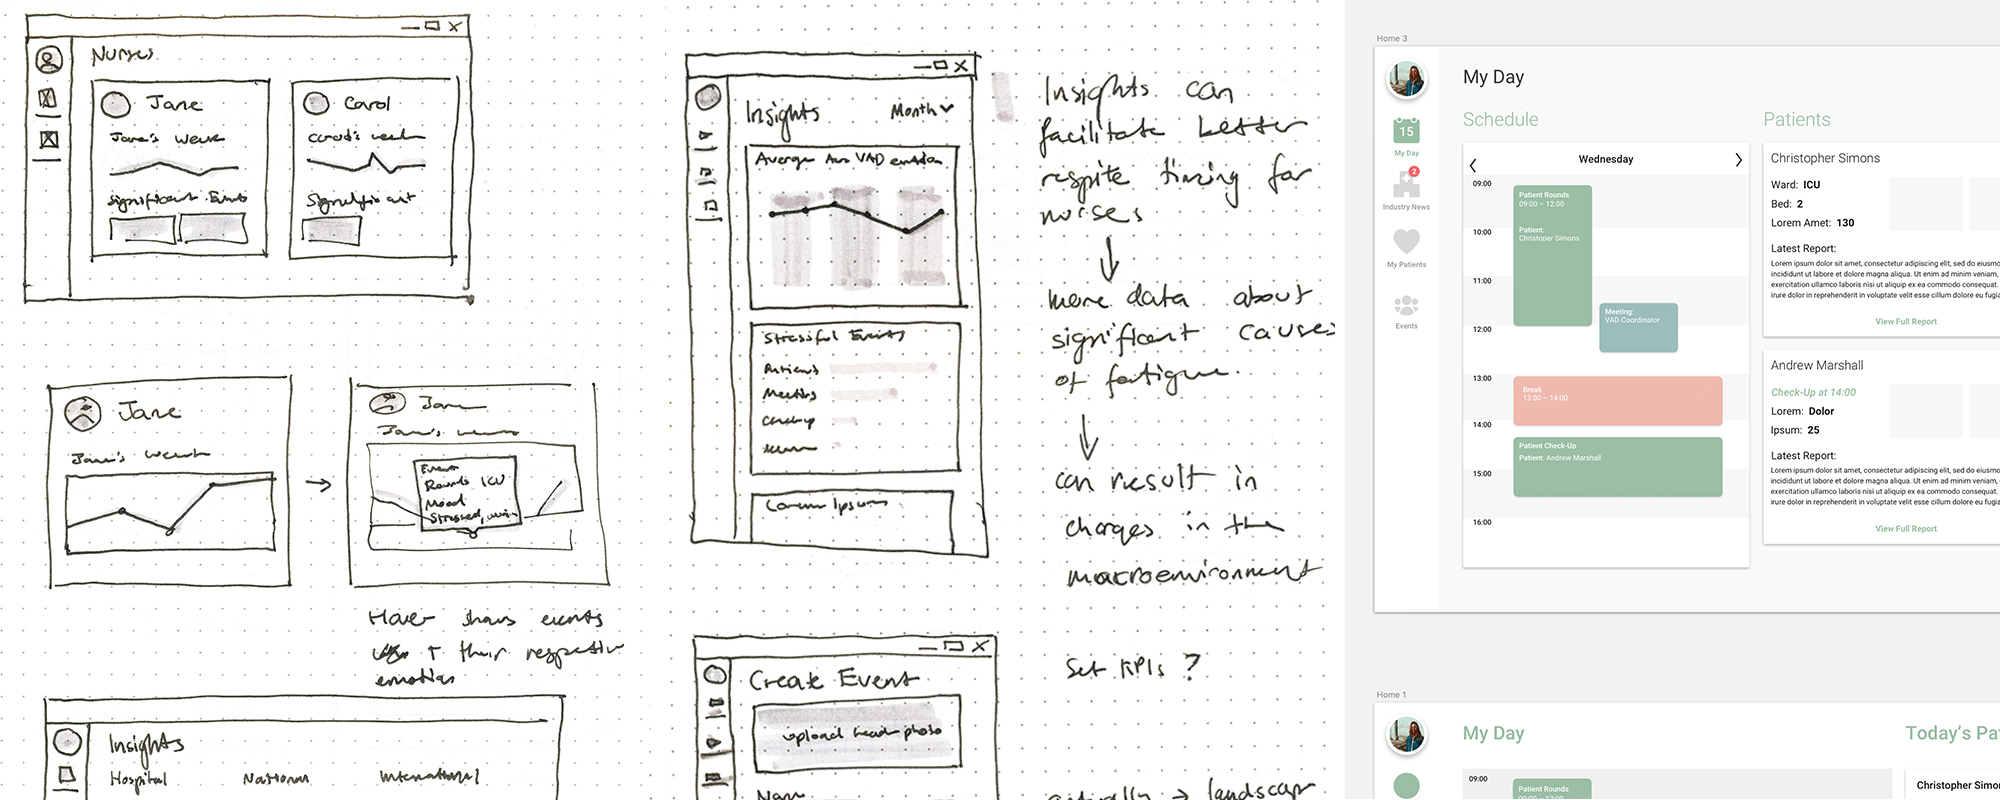 Nurses
Jane
Carol
Jane's Week
Carol's week
Significant Events
Significant
Jane
Jane's Week
Jane
Jane's
Event
Rounds ICU
Mood
Stressed,
Hover shows events
+ their respective
emotion
Insights
Hospital
National
International
Insights
Month
Average VAD emotion
Stressful Events
Patients
Meetings
Checkup
Lorem Ipsum
Insights can
facilitate better
respite timing for
nurses
more data about
significant causes
of fatigue.
can result in
changes in the
macroenvironment
Create Event
upload header photo
Name
Set KPIs ?
→ landscape
Home 3
My Day
Schedule
Patients
15
My Day
2
Industry News
My Patients
Events
Wednesday
09:00
10:00
11:00
12:00
13:00
14:00
15:00
16:00
Patient Rounds
09:00 – 12:00
Patient:
Christoper Simons
Meeting:
VAD Coordinator
Break
13:00 – 14:00
Patient Check-Up
Patient: Andrew Marshall
Christopher Simons
Ward: ICU
Bed: 2
Lorem Amet: 130
Latest Report:
Lorem ipsum dolor sit amet, consectetur adipiscing elit, sed do eiusmo
incididunt ut labore et dolore magna aliqua. Ut enim ad minim veniam,
exercitation ullamco laboris nisi ut aliquip ex ea commodo consequat.
irure dolor in reprehenderit in voluptate velit esse cillum dolore eu fugia
View Full Report
Andrew Marshall
Check-Up at 14:00
Lorem: Dolor
Ipsum: 25
Latest Report:
Lorem ipsum dolor sit amet, consectetur adipiscing elit, sed do eiusmo
incididunt ut labore et dolore magna aliqua. Ut enim ad minim veniam,
exercitation ullamco laboris nisi ut aliquip ex ea commodo consequat.
irure dolor in reprehenderit in voluptate velit esse cillum dolore eu fugia
View Full Report
Home 1
My Day
Today's Pa
09:00
Patient Rounds
09:00 – 12:00
Christopher Simons